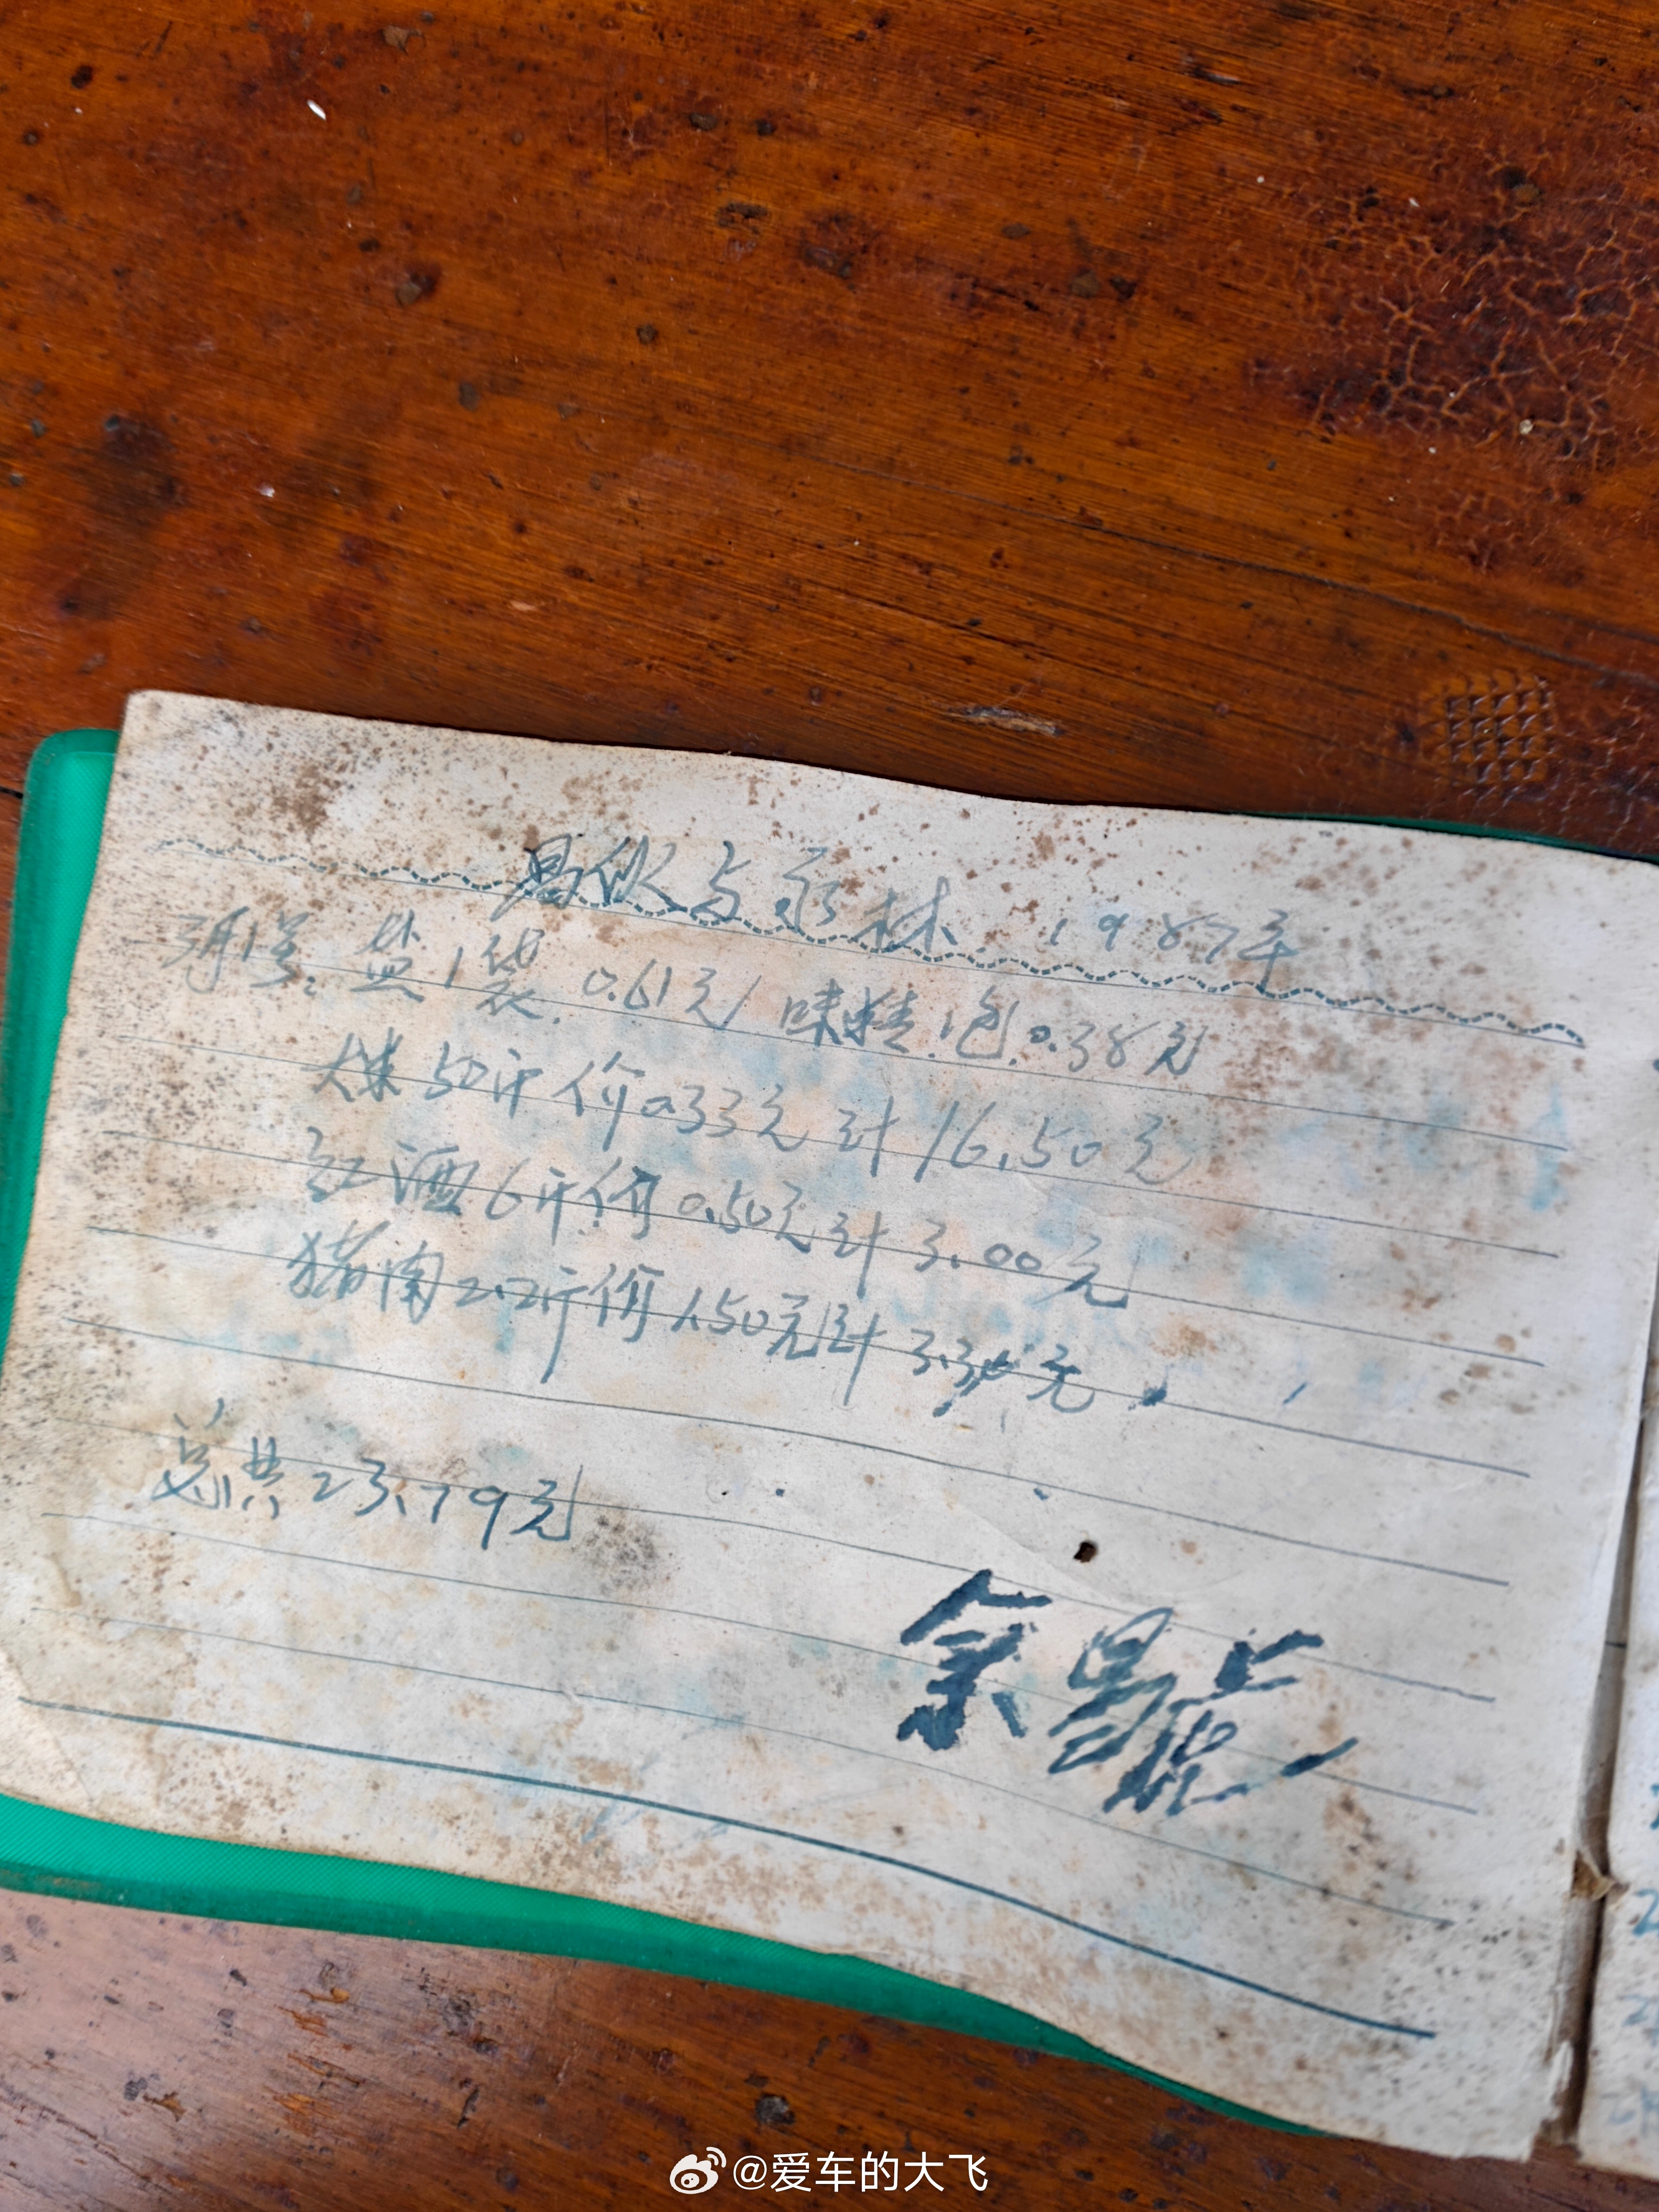 昌伙与永林 1987年
盐1袋.0.61元/味精1包.0.38元
大米50斤价0.33元计16.50元
红酒6斤价0.50元计3.00元
猪肉2.2斤价1.50元计3.30元
总共23.79元
余昌
@爱车的大飞